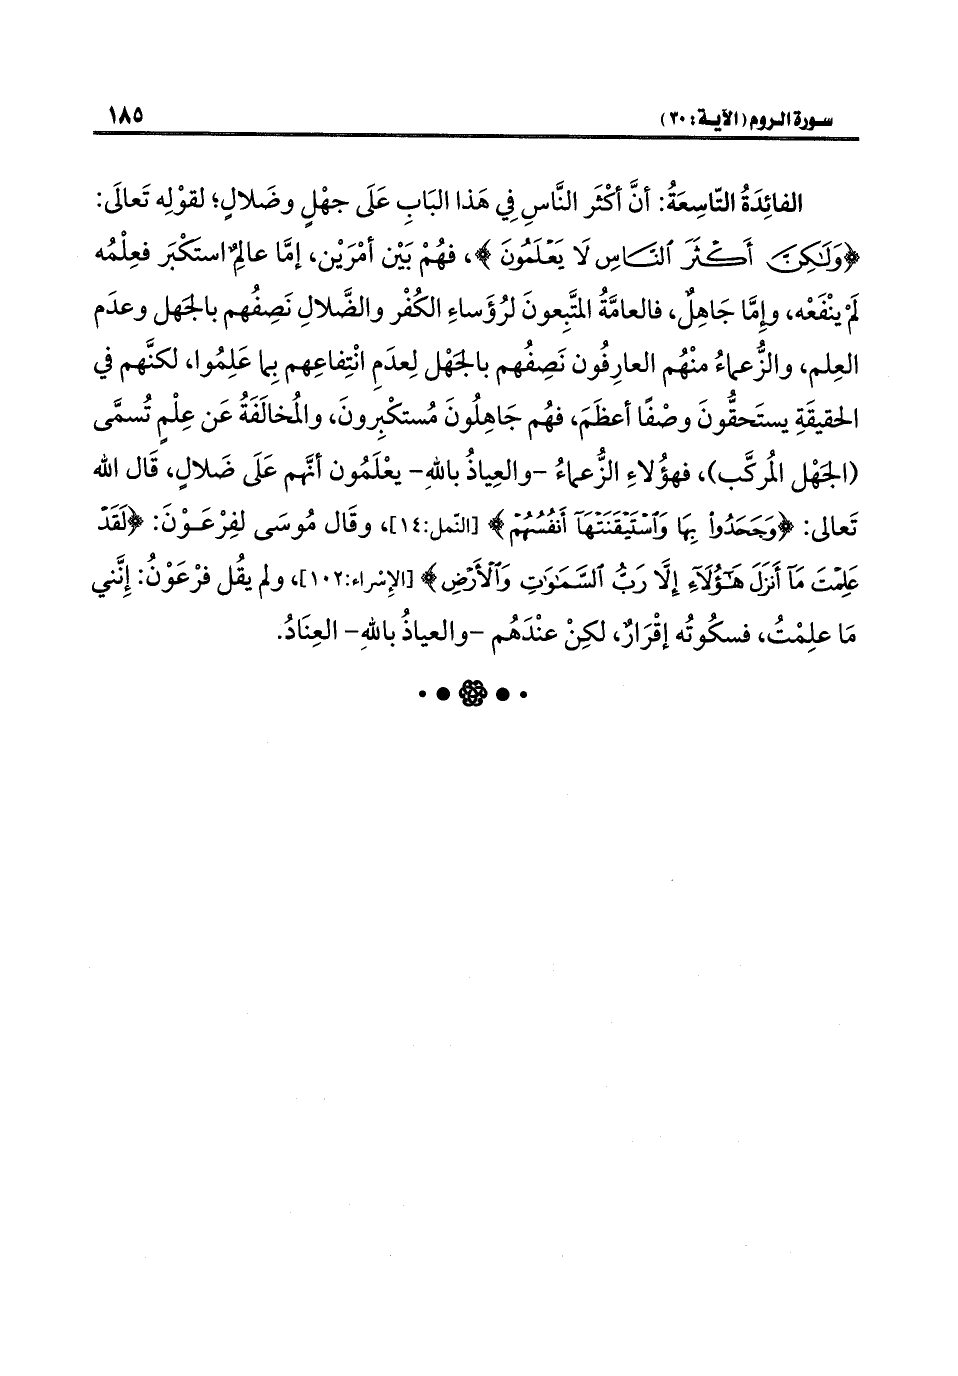 سورة الروم (الآية: ٣٠) ١٨٥
الفائِدَةُ التّاسِعَةُ: أنَّ أكْثَر النَّاسِ فِي هَذا البَابِ عَلَى جهْلٍ وضَلالٍ؛ لقوْلِه تَعالَى:
﴿وَلَٰكِنَّ أَكْثَرَ ٱلنَّاسِ لَا يَعْلَمُونَ﴾، فهُمْ بَيْن أمْرَيْن، إمَّا عالِمٌ استكْبَر فعِلْمُه
لَمْ ينْفَعْه، وإمَّا جَاهِلٌ، فالعامَّةُ المتَّبِعونَ لرُؤَساءِ الكُفْر والضَّلالِ نَصِفُهم بالجَهل وعدَم
العِلم، والزُّعماءُ منْهُم العارِفُون نَصِفُهم بالجَهْل لِعدَمِ انْتِفاعِهم بِما عَلِمُوا، لكنَّهم في
الحقيقَةِ يستَحقُّونَ وصْفًا أعظَمَ، فهُم جَاهِلُونَ مُستكْبِرونَ، والمُخالَفَةُ عَن عِلْمٍ تُسمَّى
(الجَهْل المُركَّب)، فهؤُلاءِ الزُّعماءُ -والعِياذُ باللهِ- يعْلَمُون أنَّهم عَلَى ضَلالٍ، قَال الله
تَعالى: ﴿وَجَحَدُوا۟ بِهَا وَٱسْتَيْقَنَتْهَآ أَنفُسُهُمْ﴾ [النّمل:١٤]، وقَال مُوسَى لفِرْعَوْنَ: ﴿لَقَدْ
عَلِمْتَ مَآ أَنزَلَ هَٰٓؤُلَآءِ إِلَّا رَبُّ ٱلسَّمَٰوَٰتِ وَٱلْأَرْضِ﴾ [الإسْراء:١٠٢]، ولم يقُل فرْعَوْنُ: إنَّني
مَا علِمْتُ، فسكُوتُه إقْرَارٌ، لكِنْ عنْدَهُم -والعياذُ باللهِ- العِنَادُ.